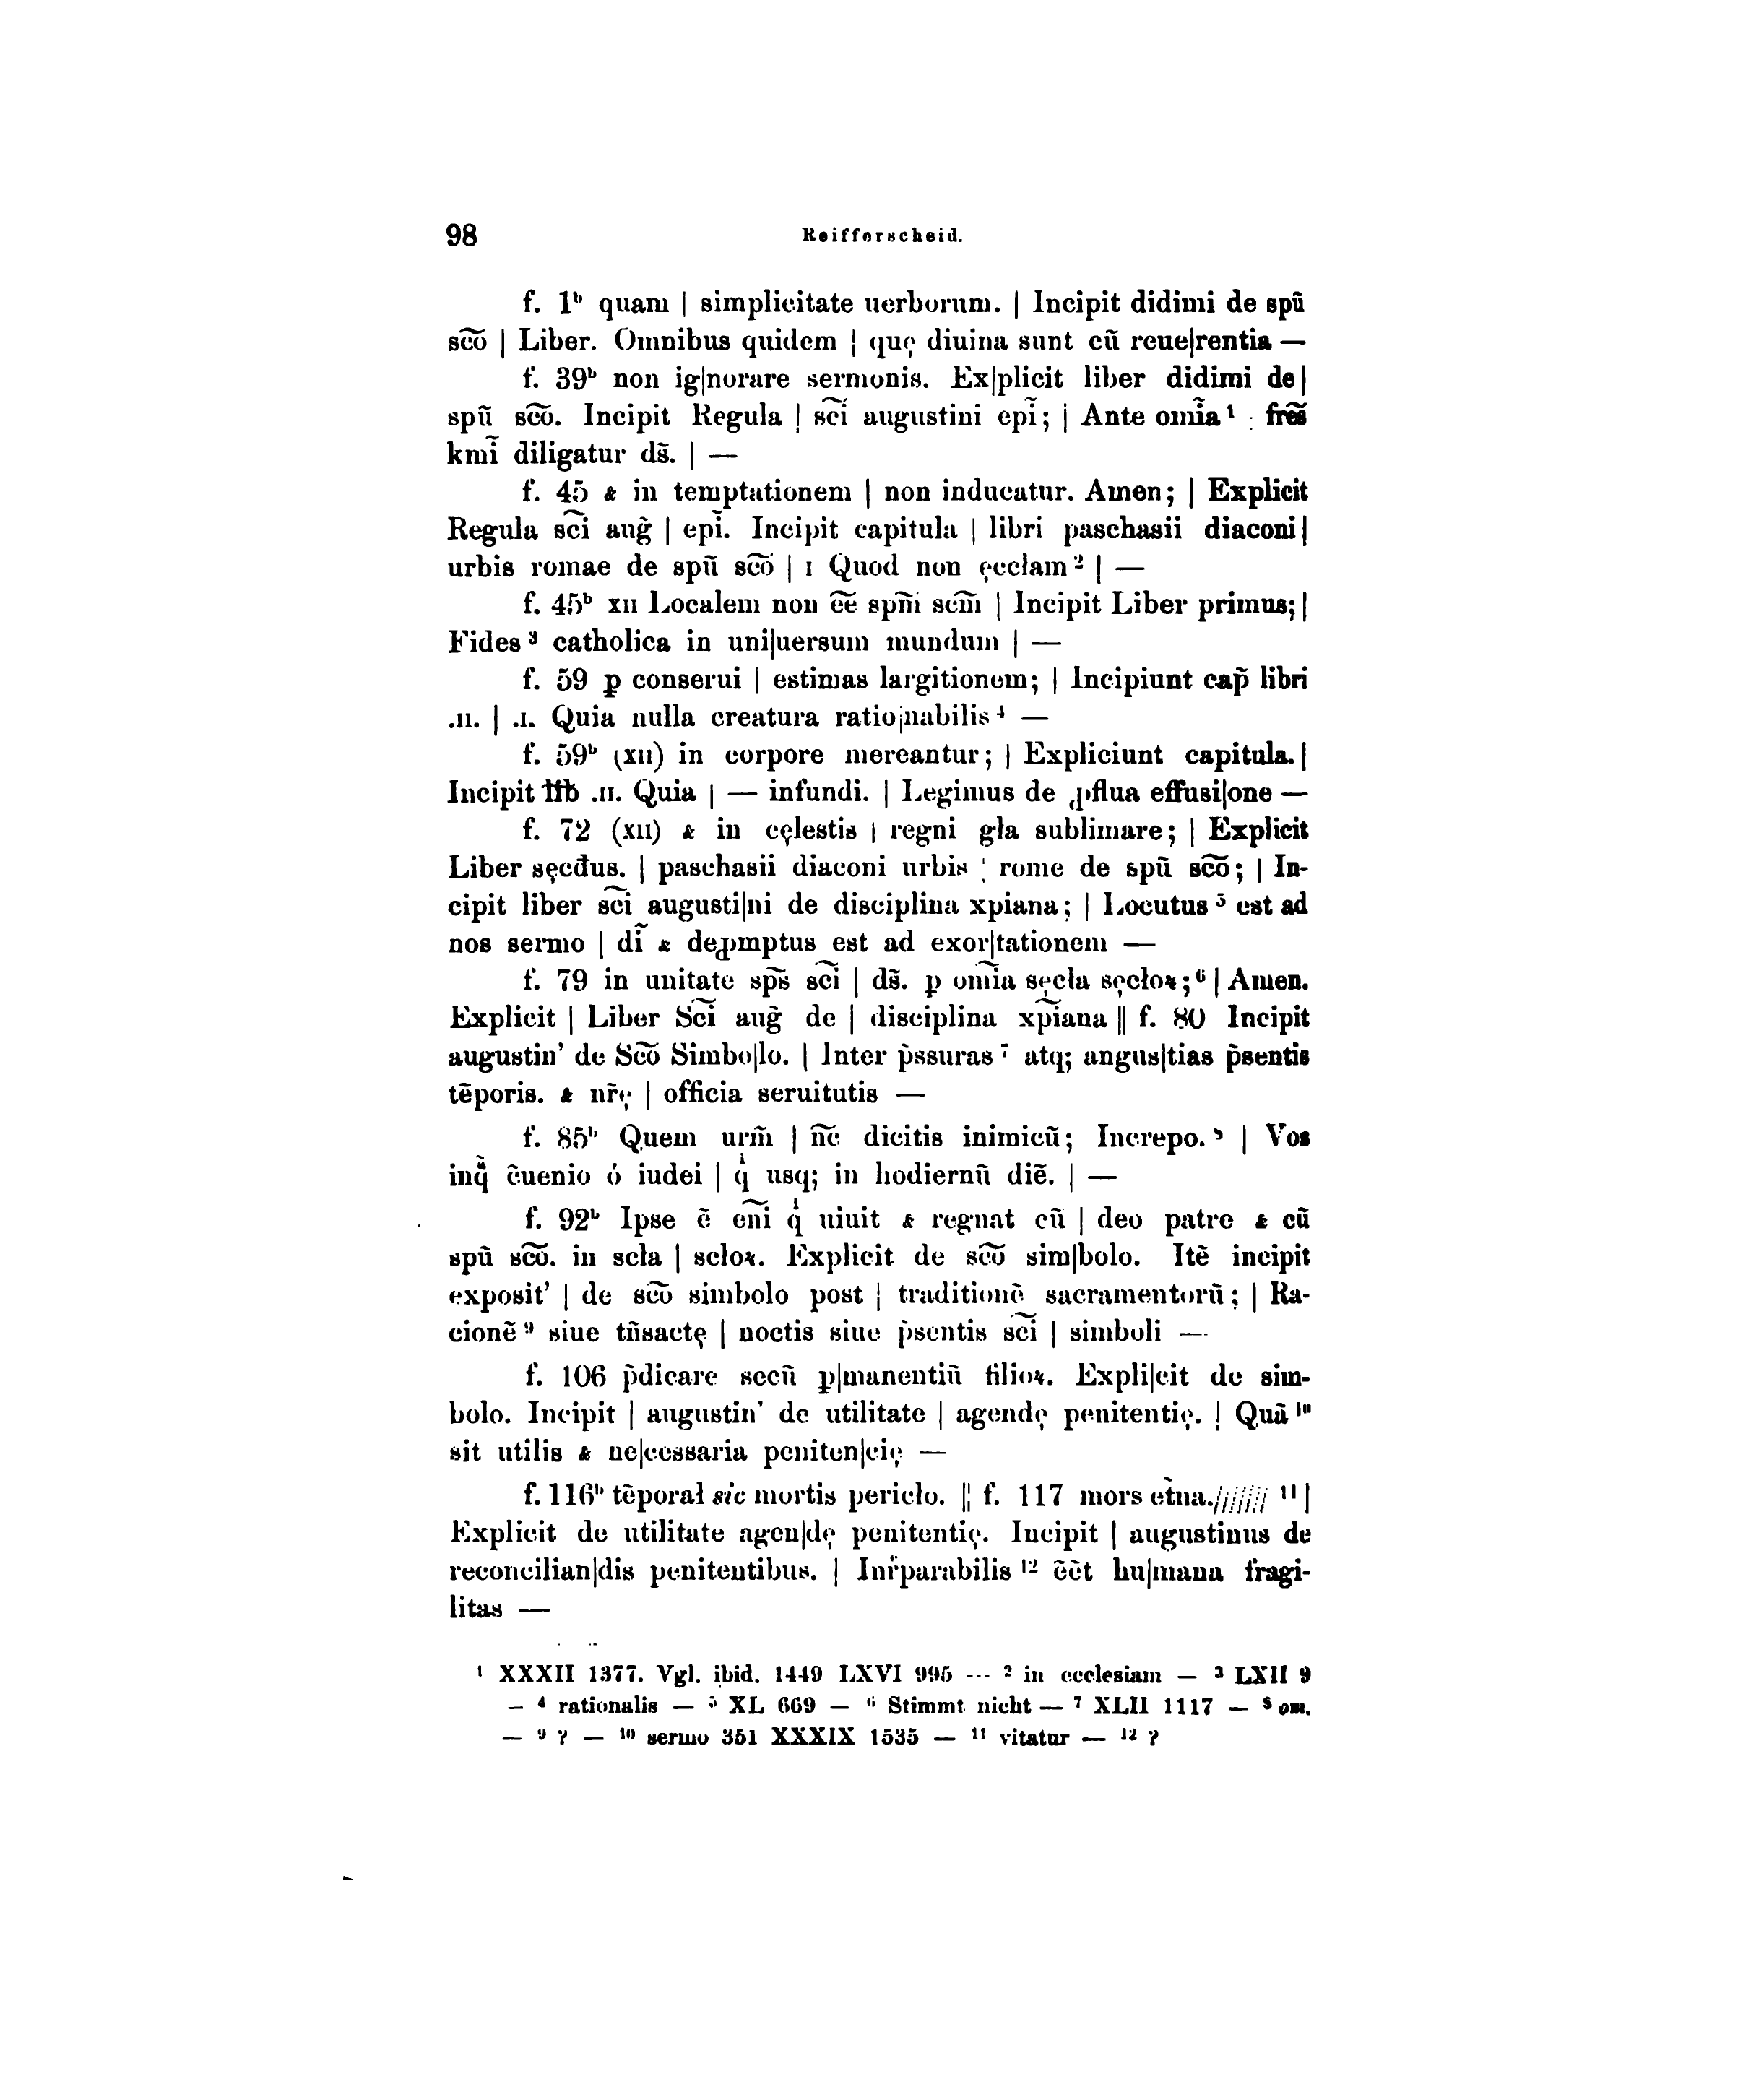 98 Reifferscheid.
f. 1ᵇ quam | simplicitate uerborum. | Incipit didimi de spū
sc͞o | Liber. Omnibus quidem | quę diuina sunt cū reue|rentia —
f. 39ᵇ non ig|norare sermonis. Ex|plicit liber didimi de|
spū sc͞o. Incipit Regula | sc͞i augustini epı̃; | Ante omı̃a¹ : fr͞es
kmı̃ diligatur ds̃. | —
f. 45 & in temptationem | non inducatur. Amen; | Explicit
Regula sc͞i aug̃ | epı̃. Incipit capitula | libri paschasii diaconi|
urbis romae de spū sc͞o | ı Quod non ęccłam² | —
f. 45ᵇ xıı Localem non e͞e sp͞m sc͞m | Incipit Liber primus;|
Fides³ catholica in uni|uersum mundum | —
f. 59 ꝑ conserui | estimas largitionem; | Incipiunt cap̃ libri
.ıı. | .ı. Quia nulla creatura ratio|nabilis⁴ —
f. 59ᵇ (xıı) in corpore mereantur; | Expliciunt capitula.|
Incipit łıb .ıı. Quia | — infundi. | Legimus de ꝓflua effusi|one —
f. 72 (xıı) & in cęlestis | regni gła sublimare; | Explicit
Liber sęcđus. | paschasii diaconi urbis | rome de spū sc͞o; | In-
cipit liber sc͞i augusti|ni de disciplina xpiana; | Locutus⁵ est ad
nos sermo | dı̃ & deꝓmptus est ad exor|tationem —
f. 79 in unitate sp͞s sc͞i | ds̃. ꝑ om͞ia sęcła sęcłoꝝ;⁶ | Amen.
Explicit | Liber Sc͞i aug̃ de | disciplina xp͞iana || f. 80 Incipit
augustin’ de Sc͞o Simbo|lo. | Inter p̀ssuras⁷ atq; angus|tias p̀sentis
tẽporis. & nr̃ę | officia seruitutis —
f. 85ᵇ Quem urm̃ | n͞c dicitis inimicū; Increpo.⁸ | Vos
inq̃ c̃uenio ó iudei | qͥ usq; in hodiernū diẽ. | —
f. 92ᵇ Ipse ẽ en͞i qͥ uiuit & regnat cū | deo patre & cū
spū sc͞o. in scła | scloꝝ. Explicit de sc͞o sim|bolo. Itẽ incipit
exposit’ | de sc͞o simbolo post | traditionẽ sacramentorū; | Ra-
cionẽ⁹ siue tñsactę | noctis siue p̀sentis sc͞i | simboli —
f. 106 p̀dicare secū ꝑ|manentiū filioꝝ. Expli|cit de sim-
bolo. Incipit | augustin’ de utilitate | agendę penitentię. | Quā¹⁰
sit utilis & ne|cessaria peniten|cię —
f. 116ᵇ tẽporał sic mortis pericło. || f. 117 mors et̃na.//////// ¹¹ |
Explicit de utilitate agen|dę penitentię. Incipit | augustinus de
reconcilian|dis penitentibus. | Inr̃parabilis¹² ẽẽt hu|mana fragi-
litas —
¹ XXXII 1377. Vgl. ibid. 1449 LXVI 995 --- ² in ecclesiam — ³ LXII 9
— ⁴ rationalis — ⁵ XL 669 — ⁶ Stimmt nicht — ⁷ XLII 1117 — ⁸ om.
— ⁹ ? — ¹⁰ sermo 351 XXXIX 1535 — ¹¹ vitatur — ¹² ?